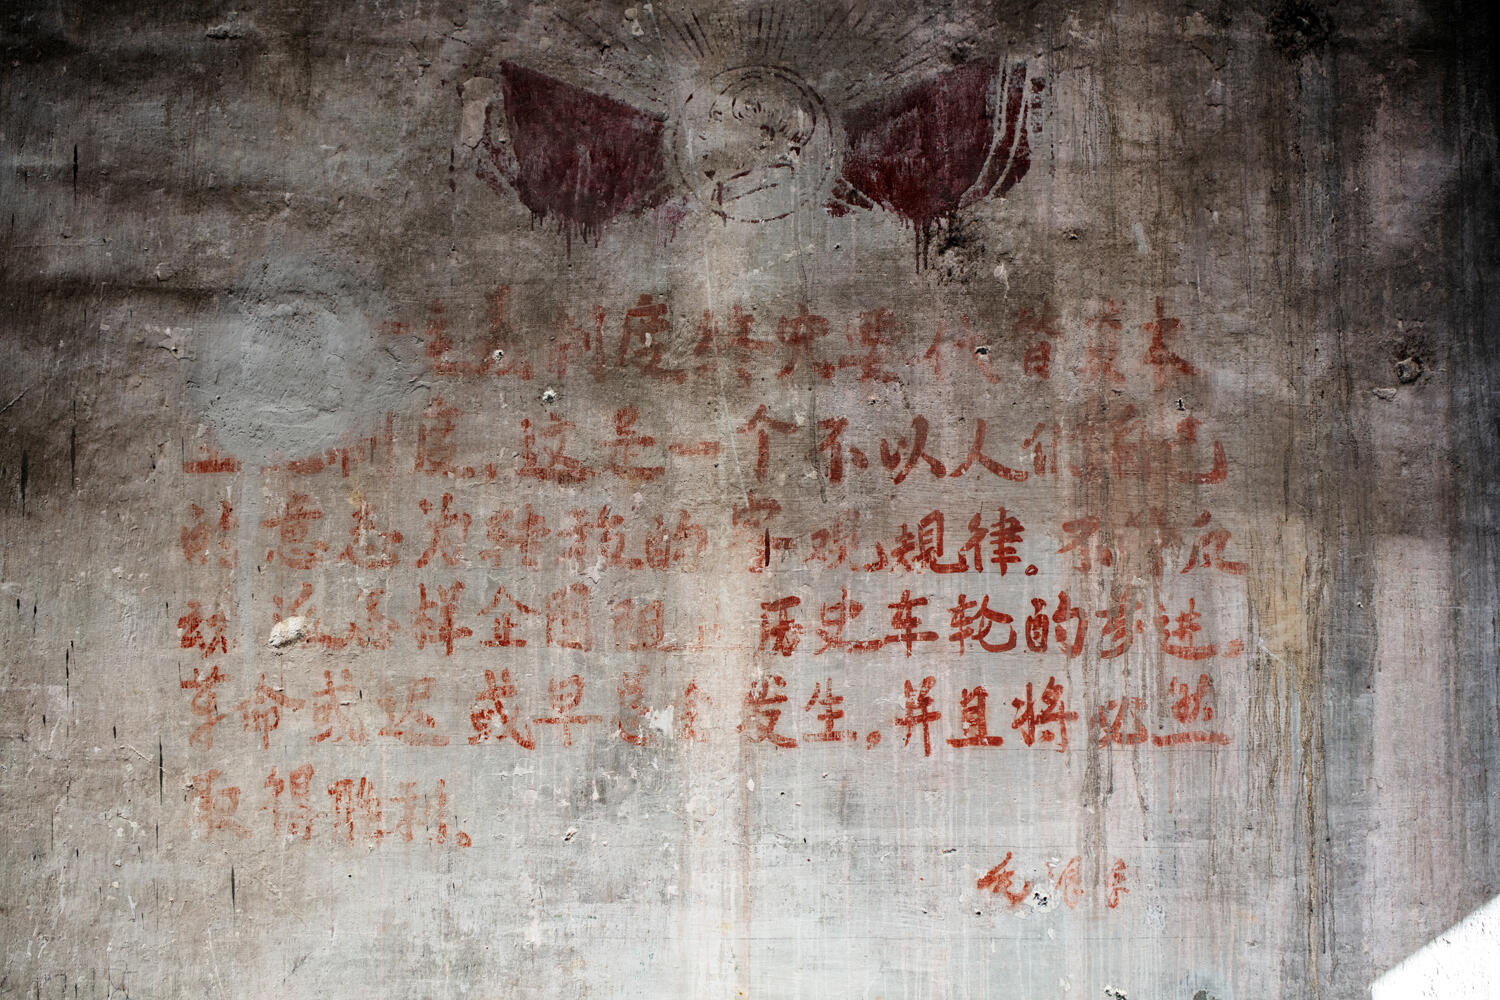 主义制度终究要代替资本
主义制度,这是一个不以人们自己
的意志为转移的客观规律。不管反
动派怎样企图阻 历史车轮的前进,
革命或迟或早总会发生,并且将必然
取得胜利。
毛泽东